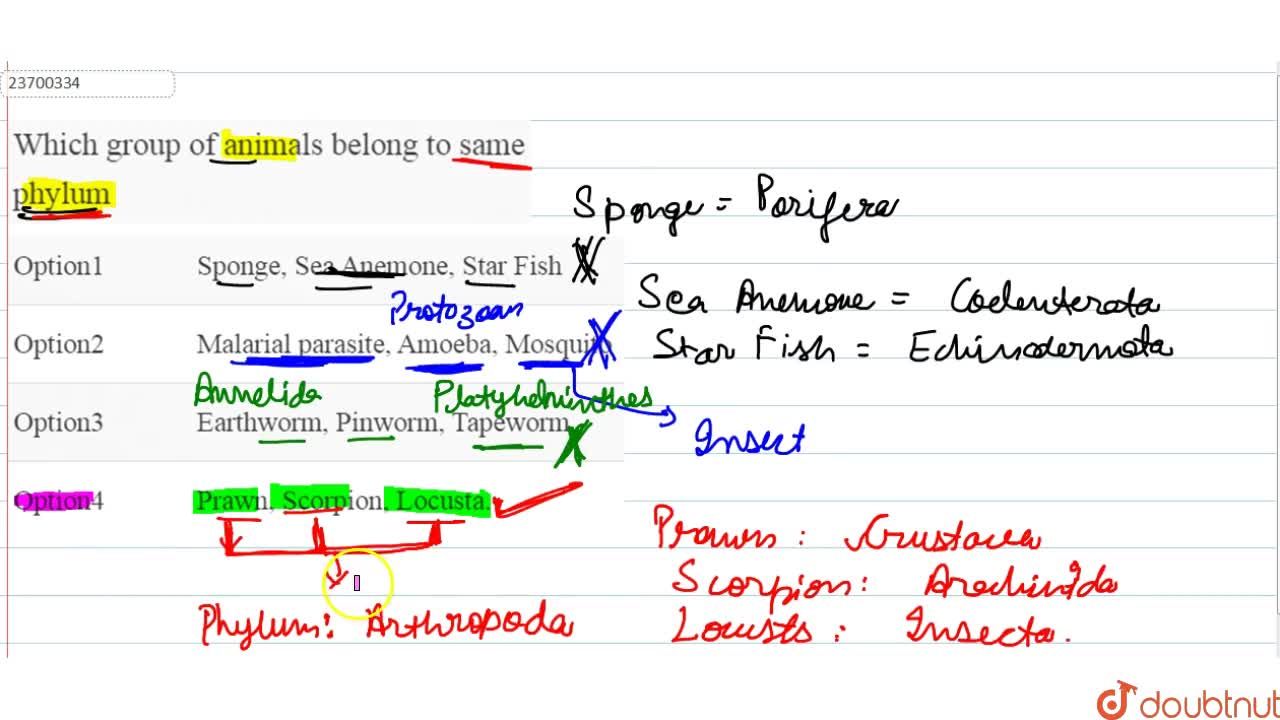 23700334
Which group of animals belong to same
phylum
Sponge = Porifera
Option1 Sponge, Sea Anemone, Star Fish
Sea Anemone = Coelenterata
Protozoan
Option2 Malarial parasite, Amoeba, Mosquito
Star Fish = Echinodermata
Annelida Platyhelminthes
Option3 Earthworm, Pinworm, Tapeworm
Insect
Option4 Prawn, Scorpion, Locusta.
Prawns : Crustacea
Scorpion: Arachnida
Phylum: Arthropoda
Locusts : Insecta.
doubtnut